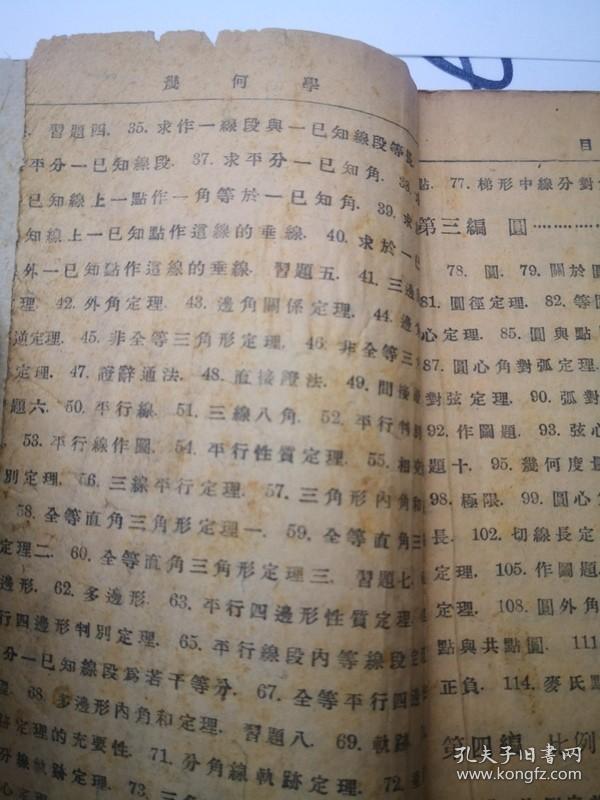 幾何學
習題四. 35. 求作一線段與一已知線段等長
平分一已知線段. 37. 求平分一已知角. 38.
已知線上一點作一角等於一已知角. 39. 求
知線上一已知點作這線的垂線. 40. 求於一已
外一已知點作這線的垂線. 習題五. 41. 三邊
理. 42. 外角定理. 43. 邊角關係定理. 44. 邊
通定理. 45. 非全等三角形定理. 46. 非全等三
定理. 47. 證辭通法. 48. 直接證法. 49. 間接
題六. 50. 平行線. 51. 三線八角. 52. 平行判
53. 平行線作圖. 54. 平行性質定理. 55. 相
別定理. 56. 三線平行定理. 57. 三角形內角和
58. 全等直角三角形定理一. 59. 全等直角三
定理二. 60. 全等直角三角形定理三. 習題七.
邊形. 62. 多邊形. 63. 平行四邊形性質定理.
行四邊形判別定理. 65. 平行線段內等線段定
分一已知線段爲若干等分. 67. 全等平行四邊
68. 多邊形內角和定理. 習題八. 69. 軌跡
跡定理的充要性. 71. 分角線軌跡定理. 72.
分線軌跡定理. 73. 三
心定
目
點. 77. 梯形中線分對
第三編 圓…………
78. 圓. 79. 關於圓
81. 圓徑定理. 82. 等圓
心定理. 85. 圓與點
87. 圓心角對弧定理.
對弦定理. 90. 弧對
92. 作圖題. 93. 弦心
題十. 95. 幾何度量
98. 極限. 99. 圓心角
長. 102. 切線長定
定理. 105. 作圖題.
定理. 108. 圓外角
點與共點圓. 111
正負. 114. 麥氏點
第四編 比例
孔夫子旧书网
www.kongfz.com